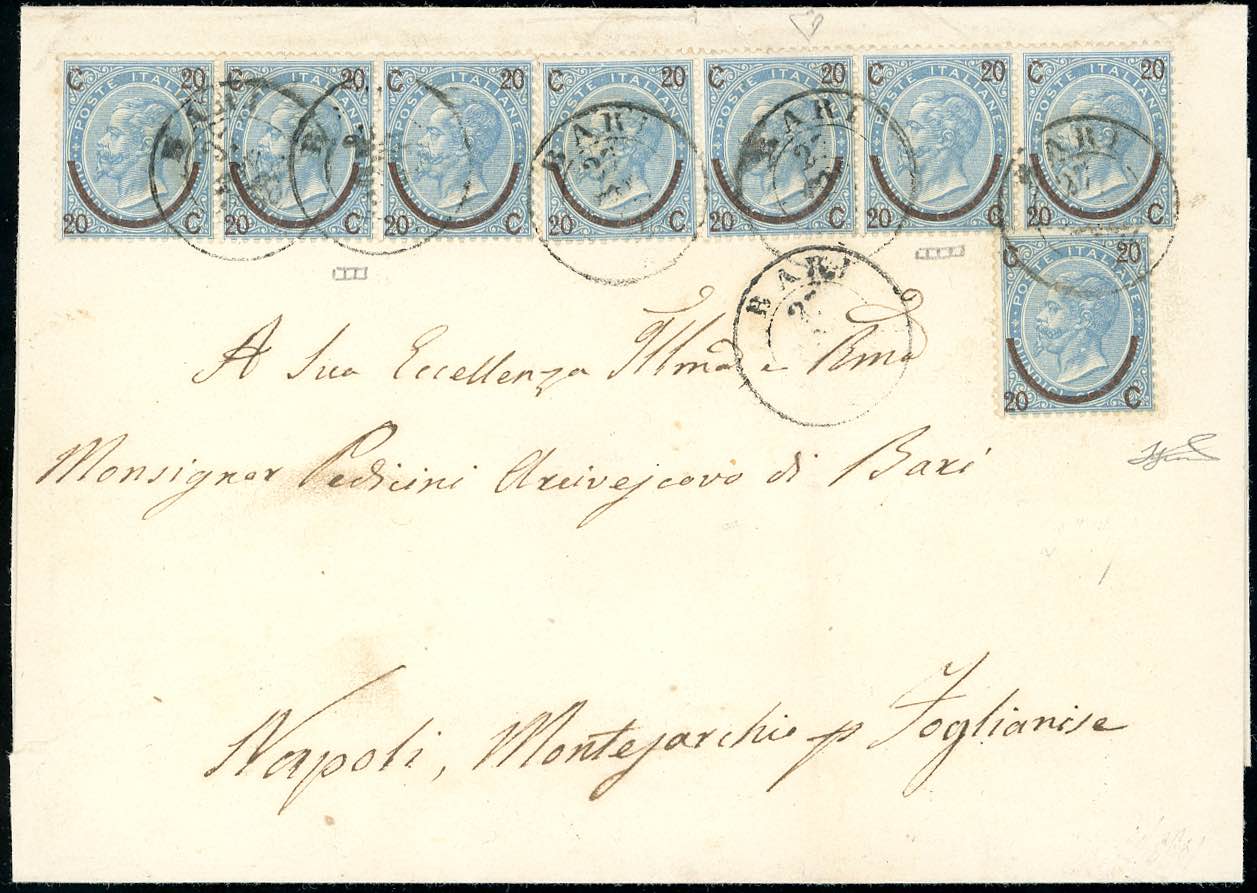 C 20 C 20 C 20 C 20 C 20 C 20 C 20
POSTE ITALIANE POSTE ITALIANE POSTE ITALIANE POSTE ITALIANE POSTE ITALIANE POSTE ITALIANE POSTE ITALIANE
BARI BARI BARI BARI
27
20 C 20 C 20 C 20 C 20 C 20 C 20 C
C 20
POSTE ITALIANE
QUINDICI
20 C
BARI
A Sua Eccellenza Illma e Rma
Monsignor Pedicini Arcivescovo di Bari
Napoli, Montesarchio p Foglianise